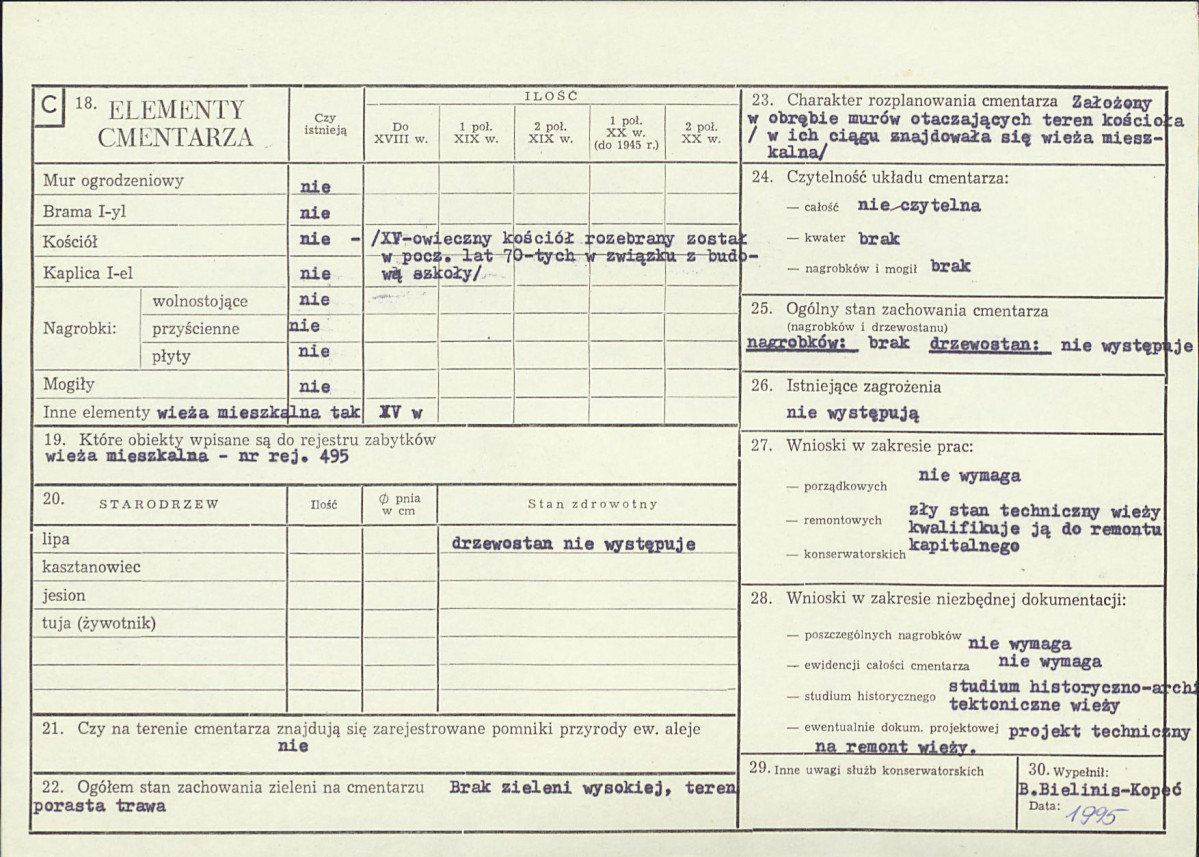 C 18. ELEMENTY CMENTARZA
Czy istnieją
ILOŚĆ
Do XVIII w.
1 poł. XIX w.
2 poł. XIX w.
1 poł. XX w. (do 1945 r.)
2 poł. XX w.
Mur ogrodzeniowy nie
Brama I-yl nie
Kościół nie - /XV-owieczny kościół rozebrany został
w pocz. lat 70-tych w związku z budo-
Kaplica I-el nie wą szkoły/
Nagrobki: wolnostojące nie
przyścienne nie
płyty nie
Mogiły nie
Inne elementy wieża mieszkalna tak XV w
19. Które obiekty wpisane są do rejestru zabytków
wieża mieszkalna - nr rej. 495
20. STARODRZEW Ilość Ø pnia w cm Stan zdrowotny
lipa drzewostan nie występuje
kasztanowiec
jesion
tuja (żywotnik)
21. Czy na terenie cmentarza znajdują się zarejestrowane pomniki przyrody ew. aleje
nie
22. Ogółem stan zachowania zieleni na cmentarzu Brak zieleni wysokiej, teren
porasta trawa
23. Charakter rozplanowania cmentarza Założony
w obrębie murów otaczających teren kościoła
/ w ich ciągu znajdowała się wieża miesz-
kalna/
24. Czytelność układu cmentarza:
— całość nie czytelna
— kwater brak
— nagrobków i mogił brak
25. Ogólny stan zachowania cmentarza
(nagrobków i drzewostanu)
nagrobków: brak drzewostan: nie występuje
26. Istniejące zagrożenia
nie występują
27. Wnioski w zakresie prac:
— porządkowych nie wymaga
— remontowych zły stan techniczny wieży
kwalifikuje ją do remontu
— konserwatorskich kapitalnego
28. Wnioski w zakresie niezbędnej dokumentacji:
— poszczególnych nagrobków nie wymaga
— ewidencji całości cmentarza nie wymaga
— studium historycznego studium historyczno-archi
tektoniczne wieży
— ewentualnie dokum. projektowej projekt techniczny
na remont wieży.
29. Inne uwagi służb konserwatorskich
30. Wypełnił:
B.Bielinis-Kopeć
Data: 1995